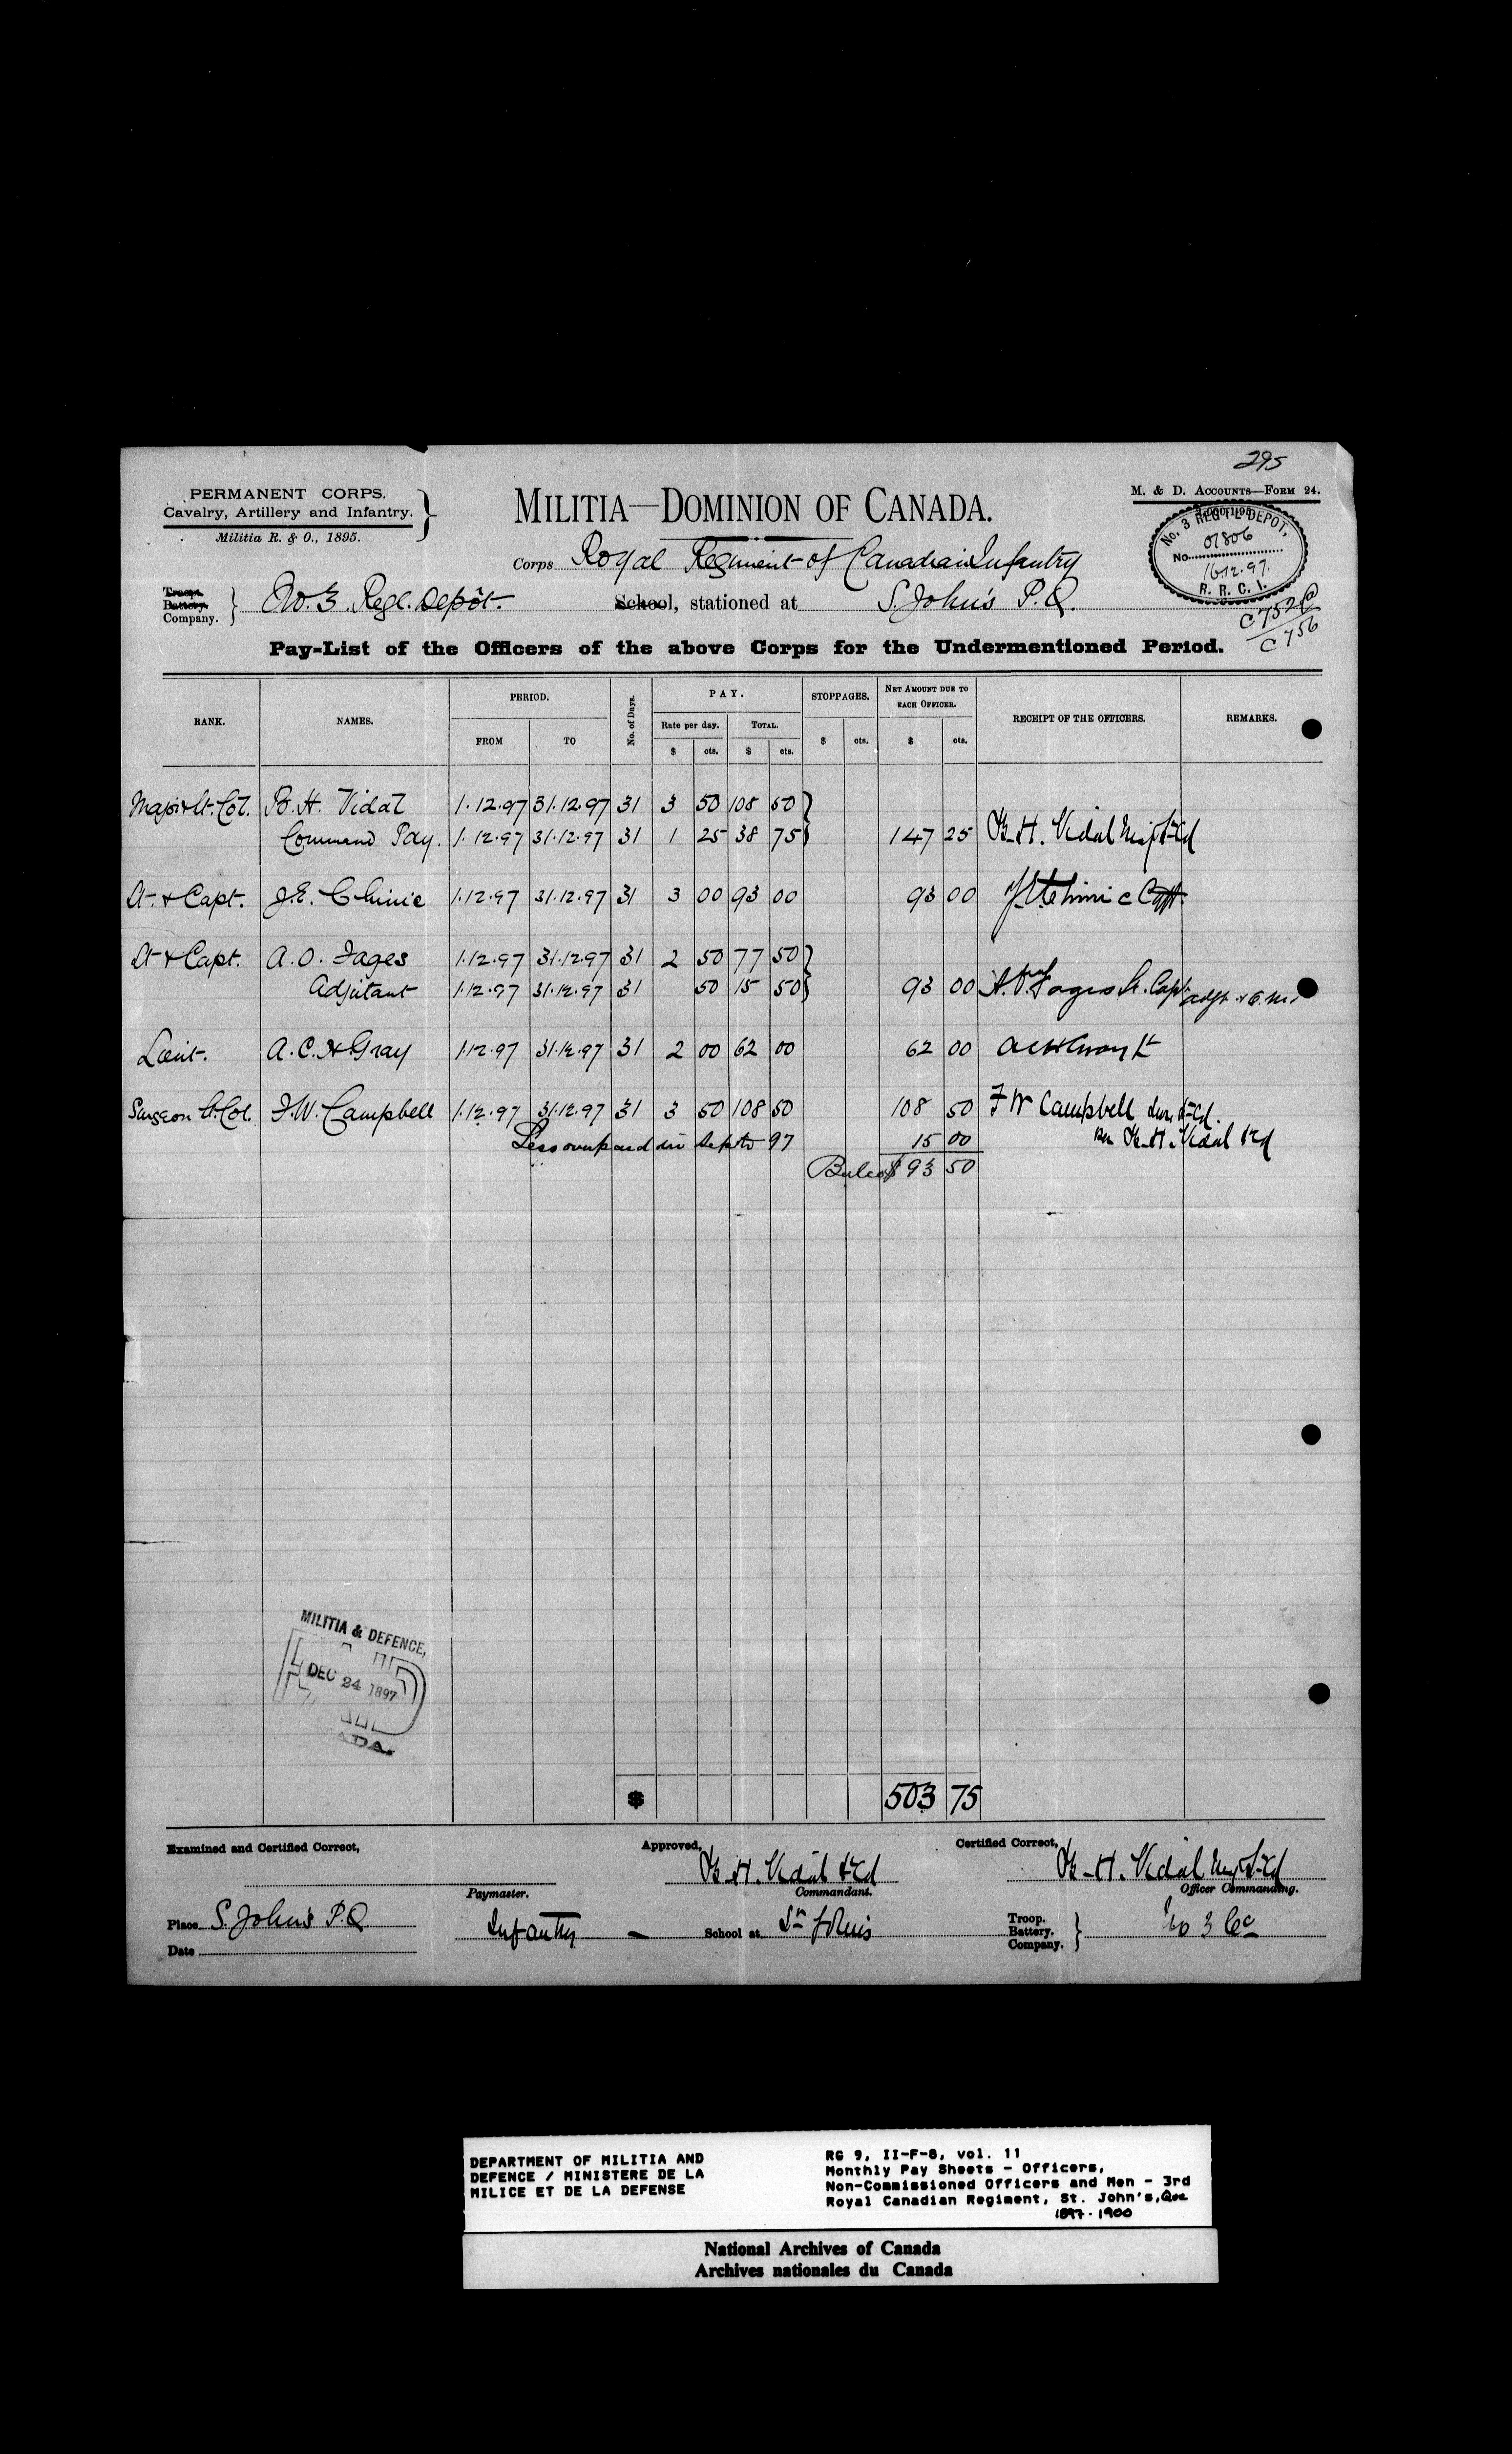 295
PERMANENT CORPS.
Cavalry, Artillery and Infantry.
Militia R. & O., 1895.
MILITIA—DOMINION OF CANADA.
M. & D. ACCOUNTS—FORM 24.
No. 3 REG'T'L DEPOT,
No. 01806
16.12.97.
R. R. C. I.
Corps Royal Regiment of Canadian Infantry
Troop.
Battery.
Company. } No. 3 Regl. Depôt. School, stationed at S. John's P.Q.
C 752
C 756
Pay-List of the Officers of the above Corps for the Undermentioned Period.
RANK. NAMES. PERIOD. No. of Days. PAY. STOPPAGES. NET AMOUNT DUE TO EACH OFFICER. RECEIPT OF THE OFFICERS. REMARKS.
FROM TO Rate per day. TOTAL.
$ cts. $ cts. $ cts. $ cts.
Major & Lt. Col. B. H. Vidal 1.12.97 31.12.97 31 3 50 108 50 }
Command Pay. 1.12.97 31.12.97 31 1 25 38 75 } 147 25 B. H. Vidal Maj Lt Col
Lt. & Capt. J.E. Chinic 1.12.97 31.12.97 31 3 00 93 00 93 00 Chinic Capt.
Lt & Capt. A. O. Fages 1.12.97 31.12.97 31 2 50 77 50 }
Adjutant 1.12.97 31.12.97 31 50 15 50 } 93 00 A. O. Fages Lt. Capt Adjt. & Q. M.
Lieut. A. C. H Gray 1.12.97 31.12.97 31 2 00 62 00 62 00 ACH Gray Lt
Surgeon Lt. Col. F. W. Campbell 1.12.97 31.12.97 31 3 50 108 50 108 50 F W Campbell Sur. Lt Col.
Less overpaid in Septr 97 15 00 B. H. Vidal Lt Col
Balce $ 93 50
MILITIA & DEFENCE,
DEC 24 1897
ADA.
$ 503 75
Examined and Certified Correct, Approved, B. H. Vidal Lt Col Certified Correct, B. H. Vidal Maj Lt Col
Paymaster. Commandant. Officer Commanding.
Place S. John's P.Q Infantry — School at St Johns Troop.
Battery.
Company. } No 3 Co
Date
DEPARTMENT OF MILITIA AND
DEFENCE / MINISTERE DE LA
MILICE ET DE LA DEFENSE
RG 9, II-F-8, vol. 11
Monthly Pay Sheets - Officers,
Non-Commissioned Officers and Men - 3rd
Royal Canadian Regiment, St. John's, Que
1897-1900
National Archives of Canada
Archives nationales du Canada